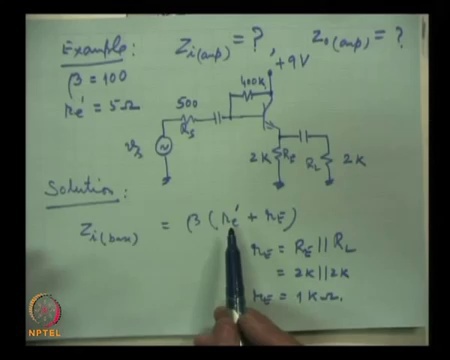 Example: Zi(amp) = ?, Zo(amp) = ?
β = 100
re' = 5Ω
+9V
400K
500
Rs
vs
2K RE
RL 2K
Solution:
Zi(base) = β (re' + rE)
rE = RE || RL
= 2K || 2K
rE = 1 KΩ.
NPTEL